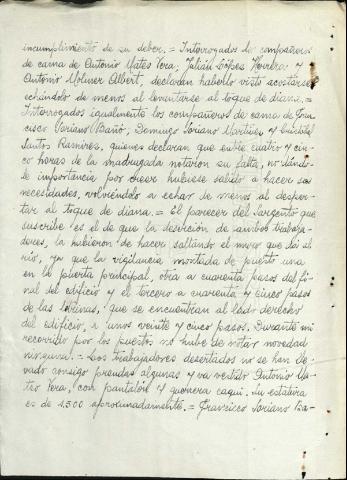 incumplimiento de su deber.= Interrogados los compañeros
de cama de Antonio Mateo Vera; Julián López Herrera; y
Antonio Moliner Albert, declaran haberlo visto acostarse
echándolo de menos al levantarse al toque de diana.=
Interrogados igualmente los compañeros de cama de Fran-
cisco Soriano Bañó; Domingo Soriano Martínez y Cristóbal
Santos Ramírez, quienes declaran que entre cuatro y cin-
co horas de la madrugada notaron su falta, no dándo-
le importancia por creer hubiese salido a hacer sus
necesidades, volviéndolo a echar de menos al desper-
tar al toque de diana.= El parecer del Sargento que
suscribe es el de que la deserción de ambos trabaja-
dores, la hubieron de hacer saltando el muro que da al
río, ya que la vigilancia montada de puesto una
en la puerta principal, otra a cuarenta pasos del fi-
nal del edificio y el tercero a cuarenta y cinco pasos
de las letrinas, que se encuentran al lado derecho
del edificio, a unos veinte y cinco pasos. Durante mi
recorrido por los puestos no hube de notar novedad
ninguna.= Los trabajadores desertados no se han lle-
vado consigo prendas algunas y va vestido Antonio Ma-
teo Vera, con pantalón y guerrera caqui. Su estatura
es de 1.500 aproximadamente.= Francisco Soriano Ba-